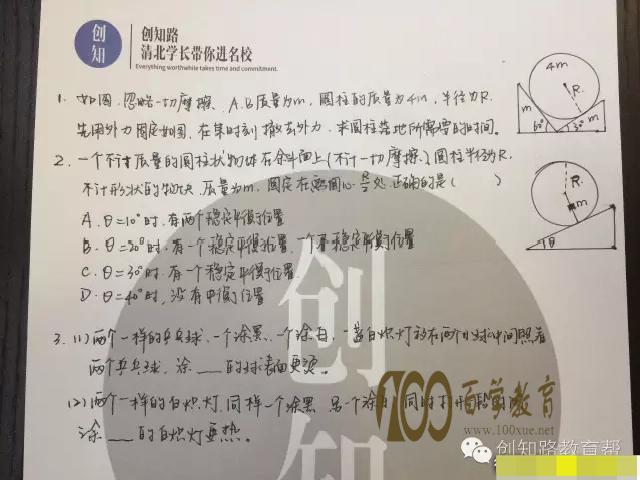 创知
创知路
清北学长带你进名校
Everything worthwhile takes time and commitment.
1. 如图,忽略一切摩擦, A.B质量为m, 圆柱的质量为4m, 半径为R.
先用外力固定如图,在某时刻撤去外力,求圆柱落地所需要的时间。
4m
R
m
m
60°
30°
2. 一个不计质量的圆柱状物体在斜面上(不计一切摩擦.)圆柱半径为R.
不计形状的物块,质量为m,固定在距圆心 R/2 处.正确的是( )
R
m
θ
A. θ=10°时.有两个稳定平衡位置
B. θ=30°时.有一个稳定平衡位置,一个不稳定平衡位置
C. θ=30°时.有一个稳定平衡位置.
D. θ=40°时,没有平衡位置
创
知
3. (1)两个一样的乒乓球,一个涂黑,一个涂白,一盏白炽灯放在两个球中间照着
两个乒乓球,涂___的球表面更烫。
(2)两个一样的白炽灯,同样一个涂黑 另一个涂白 同时打开
涂___的白炽灯更热。
100百学教育
www.100xue.net
创知路教育帮